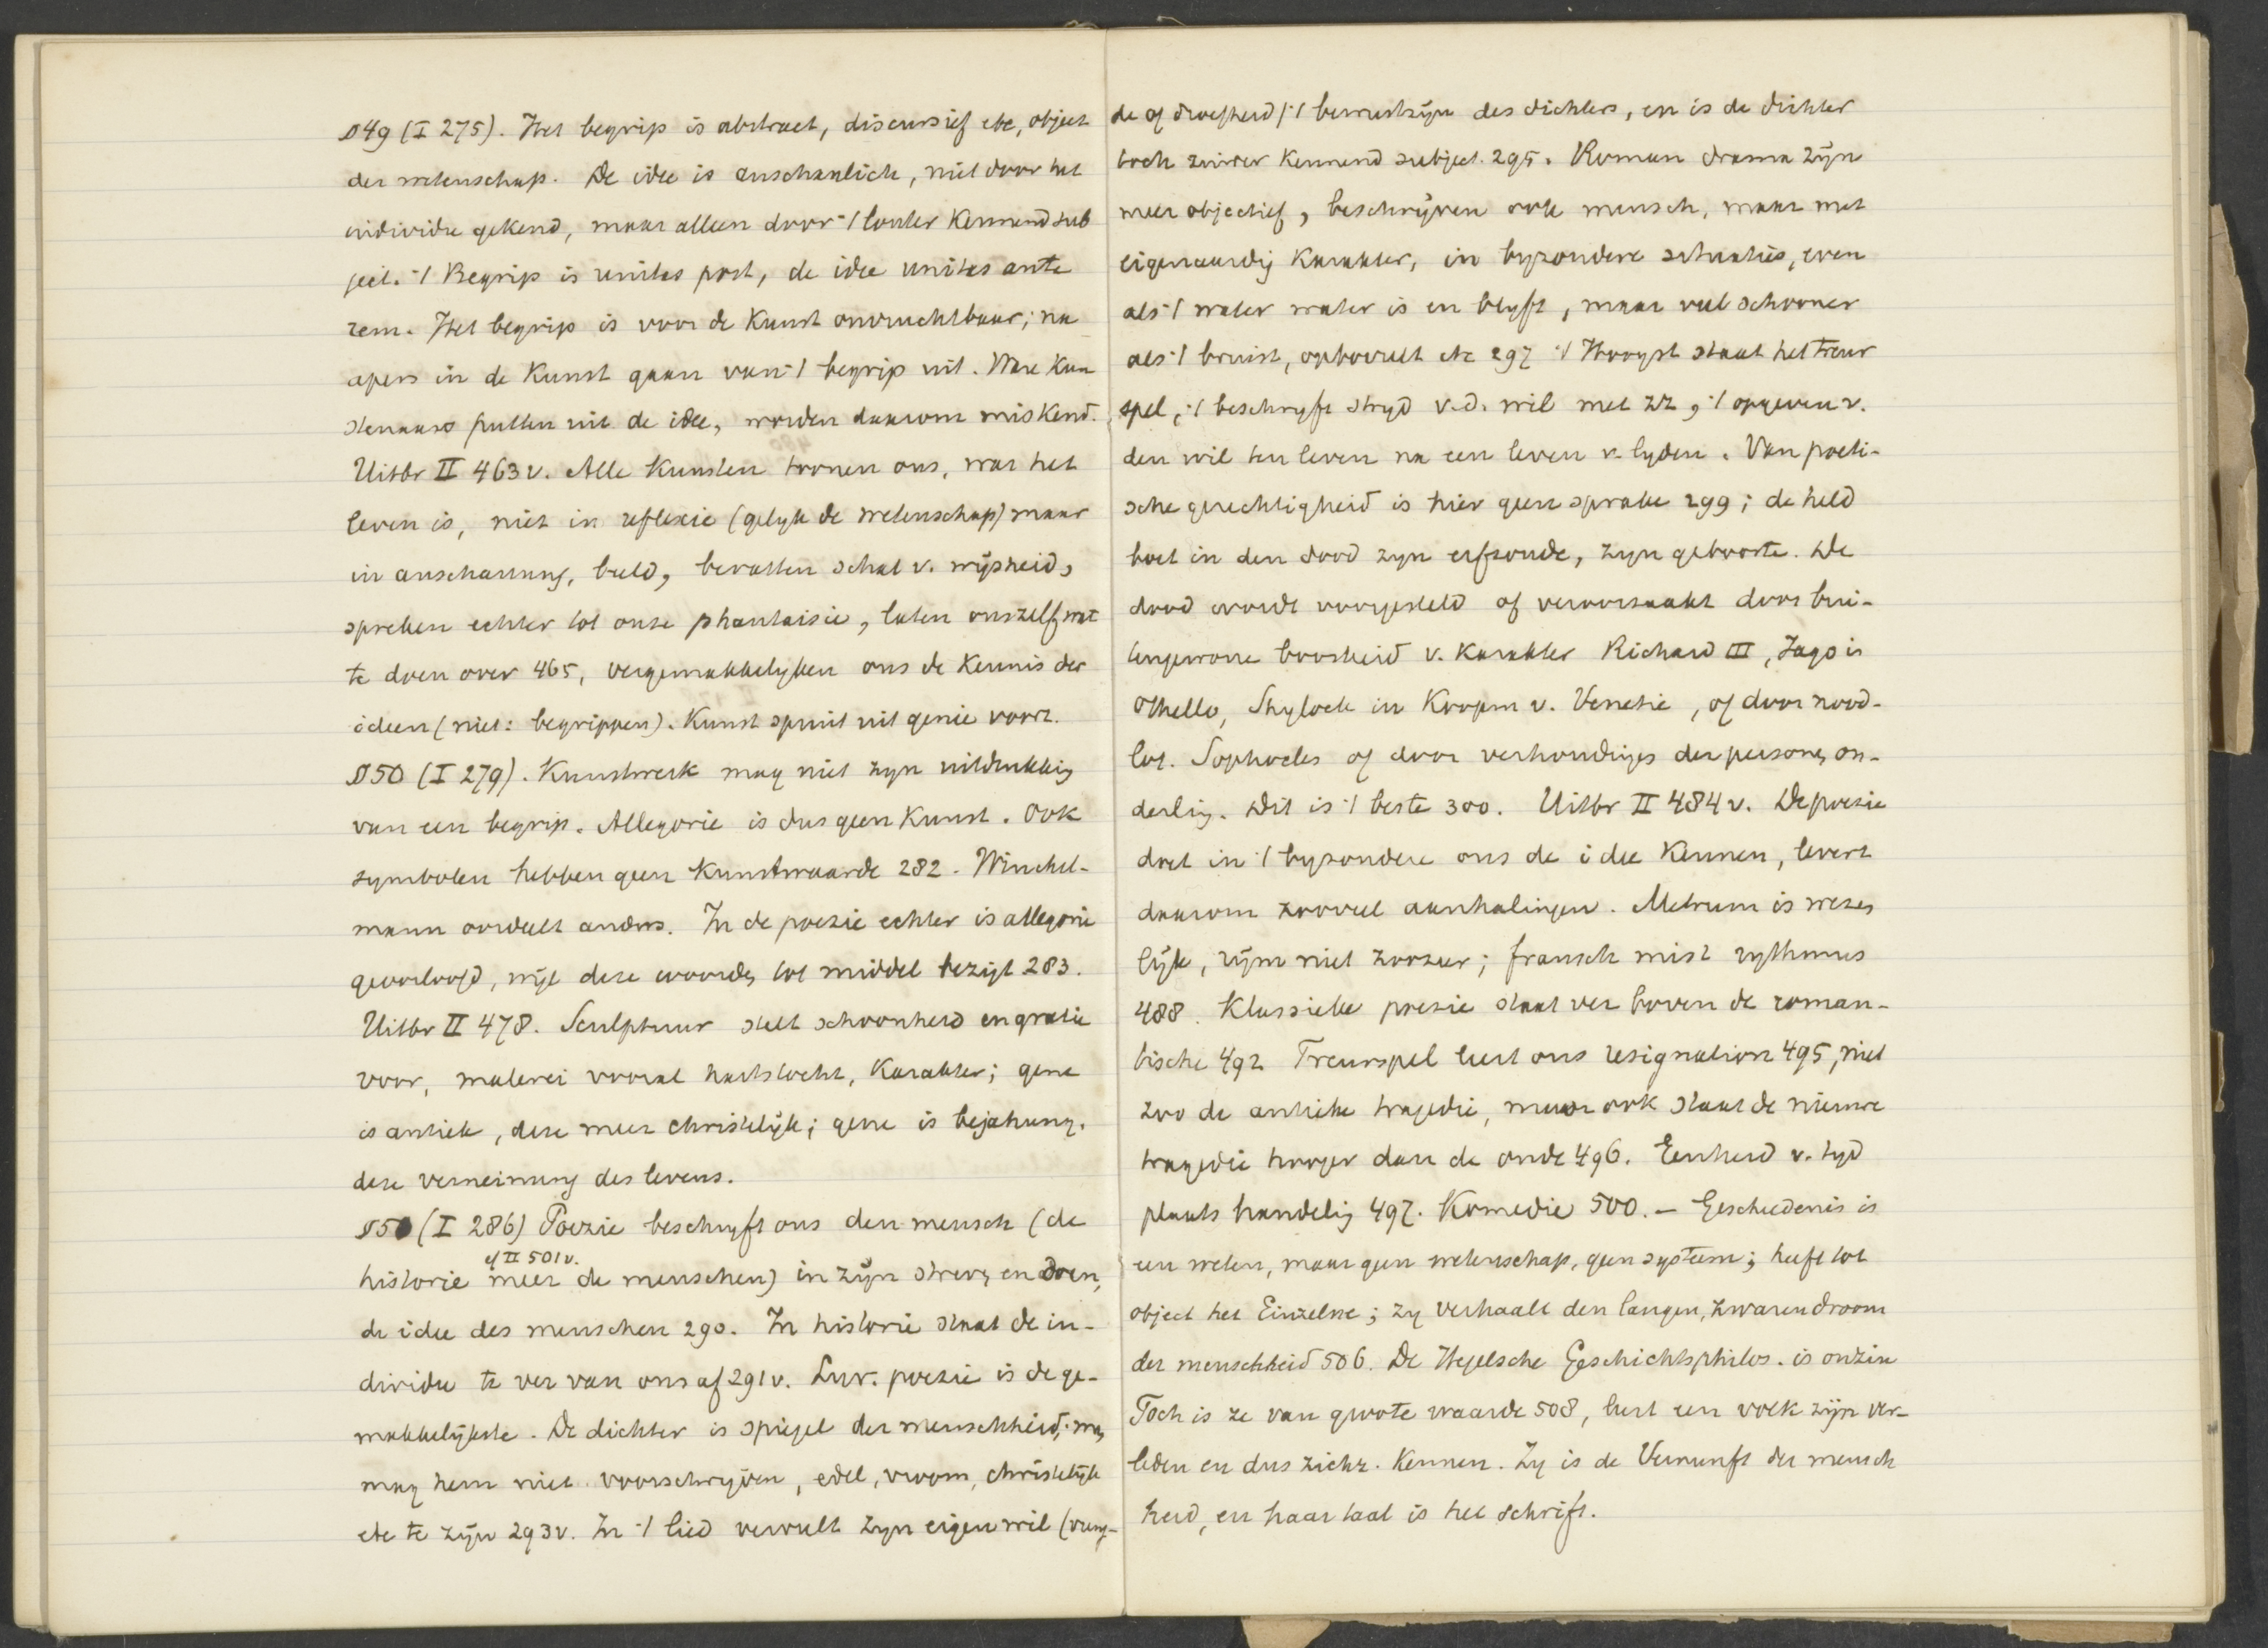 §49 (I 275). Het begrip is abstract, discursief etc, object
der wetenschap. De idee is anschaulich, niet door het
individu gekend, maar alleen door 't louter kennend sub
ject. 't Begrip is unitas post, de idee unitas ante
rem. Het begrip is voor de kunst onvruchtbaar; na
apers in de kunst gaan van 't begrip uit. Ware kun
stenaars putten uit de idee, worden daarom miskend.
Uitbr II 463v. Alle kunsten toonen ons, wat het
leven is, niet in reflexie (gelyk de wetenschap) maar
in anschauung, beeld, bevatten schat v. wijsheid,
spreken echter tot onze phantaisie, laten onszelf wat
te doen over 465, vergemakkelyken ons de kennis der
ideen (niet: begrippen). Kunst spruit uit genie voort.
§50 (I 279). Kunstwerk mag niet zyn uitdrukking
van een begrip. Allegorie is dus geen kunst. Ook
symbolen hebben geen kunstwaarde 282. Winckel-
mann oordeelt anders. In de poezie echter is allegorie
geoorloofd, wijl deze woorden tot middel bezigt 283.
Uitbr II 478. Sculptuur stelt schoonheid en gratie
voor, malerei vooral hartstocht, karakter; gene
is antiek, deze meer christelijk; gene is bejahung.
deze verneinung des levens.
§51 (I 286) Poezie beschryft ons den mensch (de
cf II 501v.
historie meer de menschen) in zijn streven en doen,
de idee des menschen 290. In historie staat de in-
dividu te ver van ons af 291v. poezie is de ge-
makkelijkste. De dichter is spiegel der menschheid; men
mag hem niet voorschrijven, edel, vroom, christelijk
etc te zijn 293v. In 't lied vervult zyn eigen wil (vreug-
de of droefheid) 't bewustzijn des dichters, en is de dichter
toch zuiver kennend subject. 295. Roman drama zijn
meer objectief, beschrijven ook mensch, maar met
eigenaardig karakter, in byzondere situaties, even
als 't water water is en blyft, maar veel schooner
als 't bruist, opborrelt etc 297 't Hoogst staat het treur
spel, 't beschryft stryd v.d. wil met zz, 't opgeven v.
den wil ten leven na een leven v. lyden. Van poeti-
sche gerechtigheid is hier geen sprake 299; de held
boet in den dood zyn erfzonde, zyn geboorte. De
dood wordt voorgesteld of veroorzaakt door bui-
tengewone boosheid v. karakter Richard III, Jago in
Othello, Shylock in Koopm v. Venetie, of door nood-
lot. Sophocles of door verhoudingen der personen on-
derling. Dit is 't beste 300. Uitbr II 484v. De poezie
doet in 't byzondere ons de idee kennen, levert
daarom zooveel aanhalingen. Metrum is wezen
lijk, rijm niet zoozeer; fransch mist rythmus
488. Klassieke poezie staat ver boven de roman-
tische 492 Treurspel leert ons resignation 495, niet
zoo de antieke tragedie, maar ook staat de nieuwe
tragedie hooger dan de oude 496. Eenheid v. tyd
plaats handeling 497. Komedie 500. – Geschiedenis is
een weten, maar geen wetenschap, geen systeem; heeft tot
object het Einzelne; zy verhaalt den langen, zwaren droom
der menschheid 506. De Hegelsche Geschichtsphilos. is onzin
Toch is ze van groote waarde 508, leert een volk zijn ver-
leden en dus zichz. kennen. Zy is de Vernunft der mensch
heid, en haar taal is het schrift.